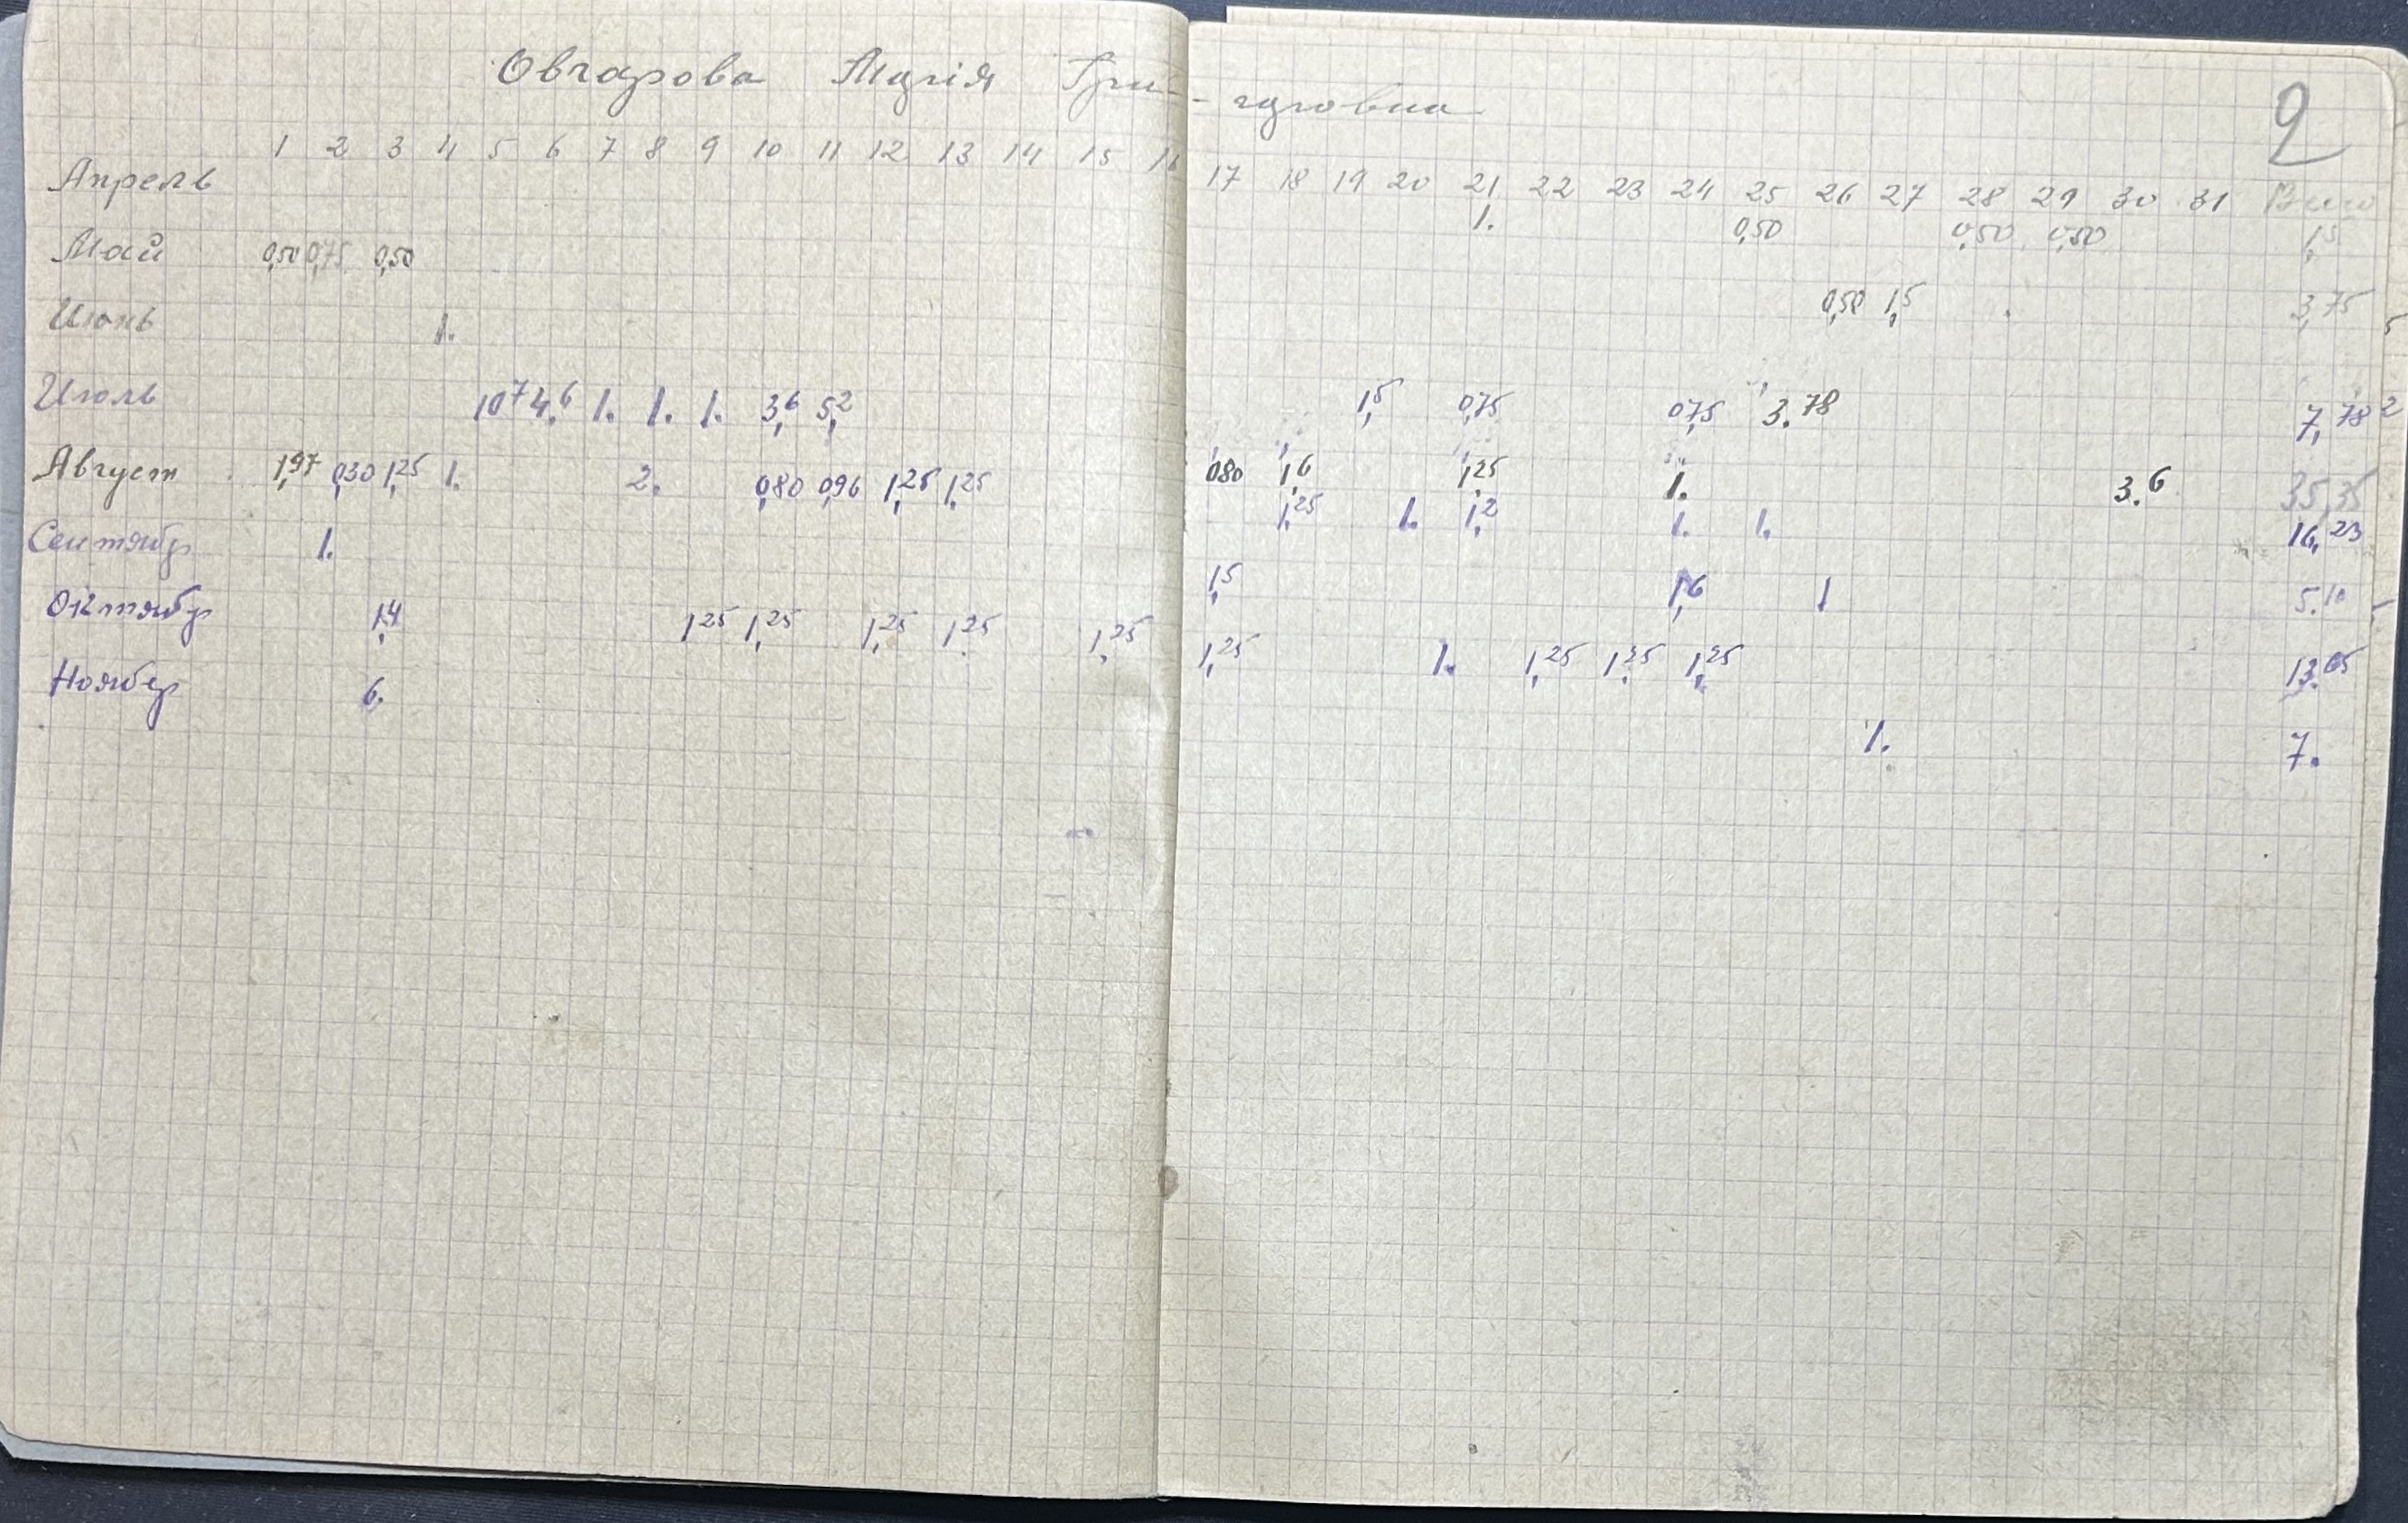 Овчарова Марія Гри-
- горовна 2
1 2 3 4 5 6 7 8 9 10 11 12 13 14 15 16 17 18 19 20 21 22 23 24 25 26 27 28 29 30 31
Апрель 1. 0,50 0,50 0,50 1,5
Май 0,50 0,75 0,50 0,50 1,5 3,75
Июнь 1. 1,5 0,75 0,75 3.78 7,78
Июль 10,7 4,6 1. 1. 1. 3,6 5,2 0,80 1,6 1,25 1. 3.6 35,35
Август 1,97 0,30 1,25 1. 2. 0,80 0,96 1,25 1,25 1,25 1. 1,2 1. 1. 16,23
Сентябр 1. 1,5 1,6 1 5.10
Октябр 1,4 1,25 1,25 1,25 1,25 1,25 1,25 1. 1,25 1,25 1,25 13.65
Ноябр 6. 1. 7.